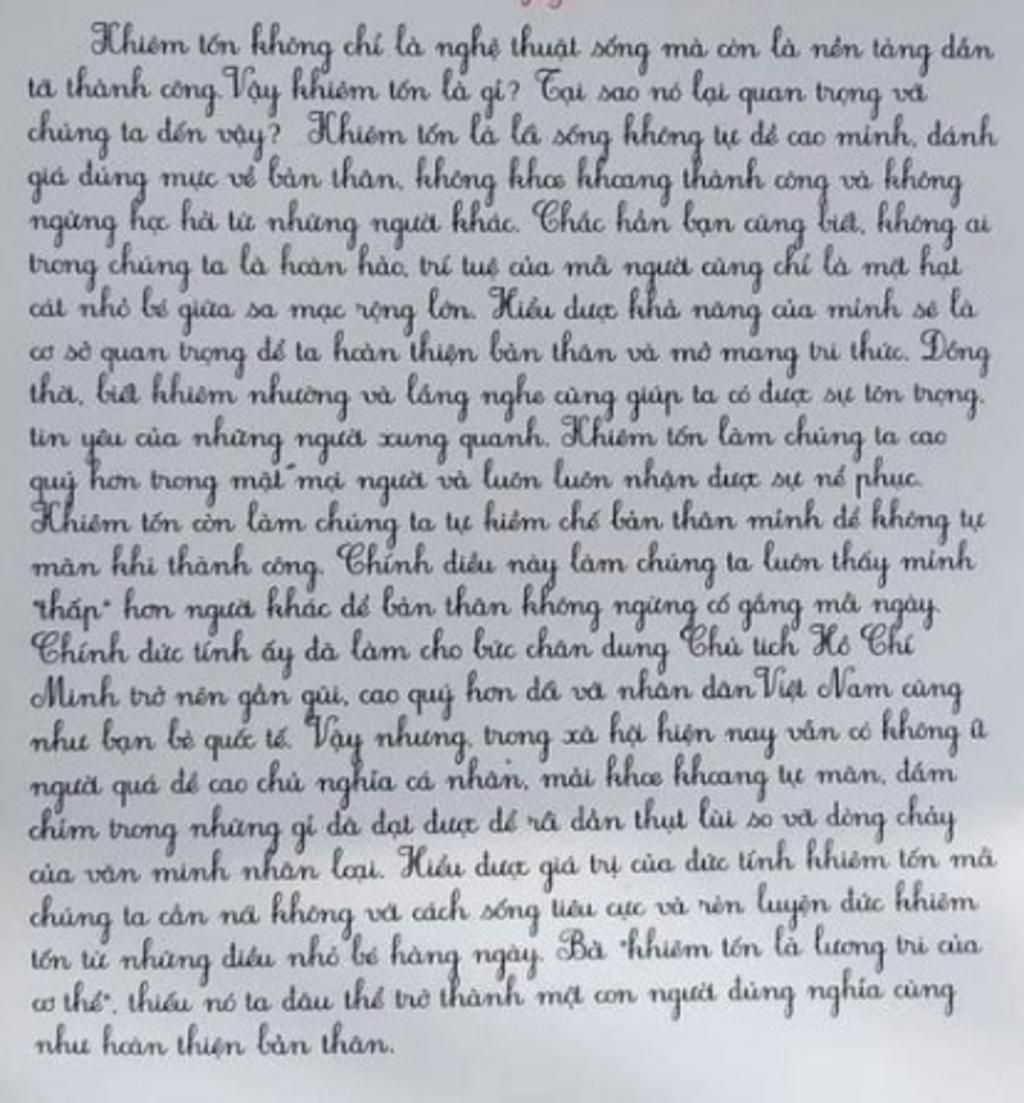 Khiêm tốn không chỉ là nghệ thuật sống mà còn là nền tảng dẫn
tới thành công. Vậy khiêm tốn là gì? Tại sao nó lại quan trọng với
chúng ta đến vậy? Khiêm tốn là lối sống không tự đề cao mình, đánh
giá đúng mực về bản thân, không khoe khoang thành công và không
ngừng học hỏi từ những người khác. Chắc hẳn bạn cũng biết, không ai
trong chúng ta là hoàn hảo, trí tuệ của mỗi người cũng chỉ là một hạt
cát nhỏ bé giữa sa mạc rộng lớn. Hiểu được khả năng của mình sẽ là
cơ sở quan trọng để ta hoàn thiện bản thân và mở mang tri thức. Đồng
thời, biết khiêm nhường và lắng nghe cũng giúp ta có được sự tôn trọng,
tin yêu của những người xung quanh. Khiêm tốn làm chúng ta cao
quý hơn trong mắt mọi người và luôn luôn nhận được sự nể phục.
Khiêm tốn còn làm chúng ta tự kiềm chế bản thân mình để không tự
mãn khi thành công. Chính điều này làm chúng ta luôn thấy mình
"thấp" hơn người khác để bản thân không ngừng cố gắng mỗi ngày.
Chính đức tính ấy đã làm cho bức chân dung Chủ tịch Hồ Chí
Minh trở nên gần gũi, cao quý hơn đối với nhân dân Việt Nam cũng
như bạn bè quốc tế. Vậy nhưng, trong xã hội hiện nay vẫn có không ít
người quá đề cao chủ nghĩa cá nhân, mải khoe khoang tự mãn, đắm
chìm trong những gì đã đạt được để rồi dần thụt lùi so với dòng chảy
của văn minh nhân loại. Hiểu được giá trị của đức tính khiêm tốn mỗi
chúng ta cần nói không với cách sống tiêu cực và rèn luyện đức khiêm
tốn từ những điều nhỏ bé hàng ngày. Bởi "khiêm tốn là lương tri của
cơ thể", thiếu nó ta đâu thể trở thành một con người đúng nghĩa cũng
như hoàn thiện bản thân.